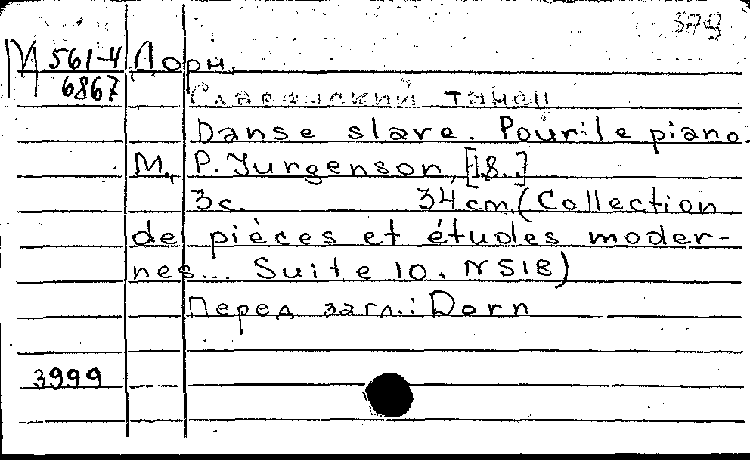 579
М 561-4 Дорн.
6867
Славянский танец
Danse slave. Pour le piano.
М., P. Jurgenson, [18..]
3с. 34 cm. (Collection
de pièces et études moder-
nes... Suite 10. N 518)
Перед загл.: Dorn
3999